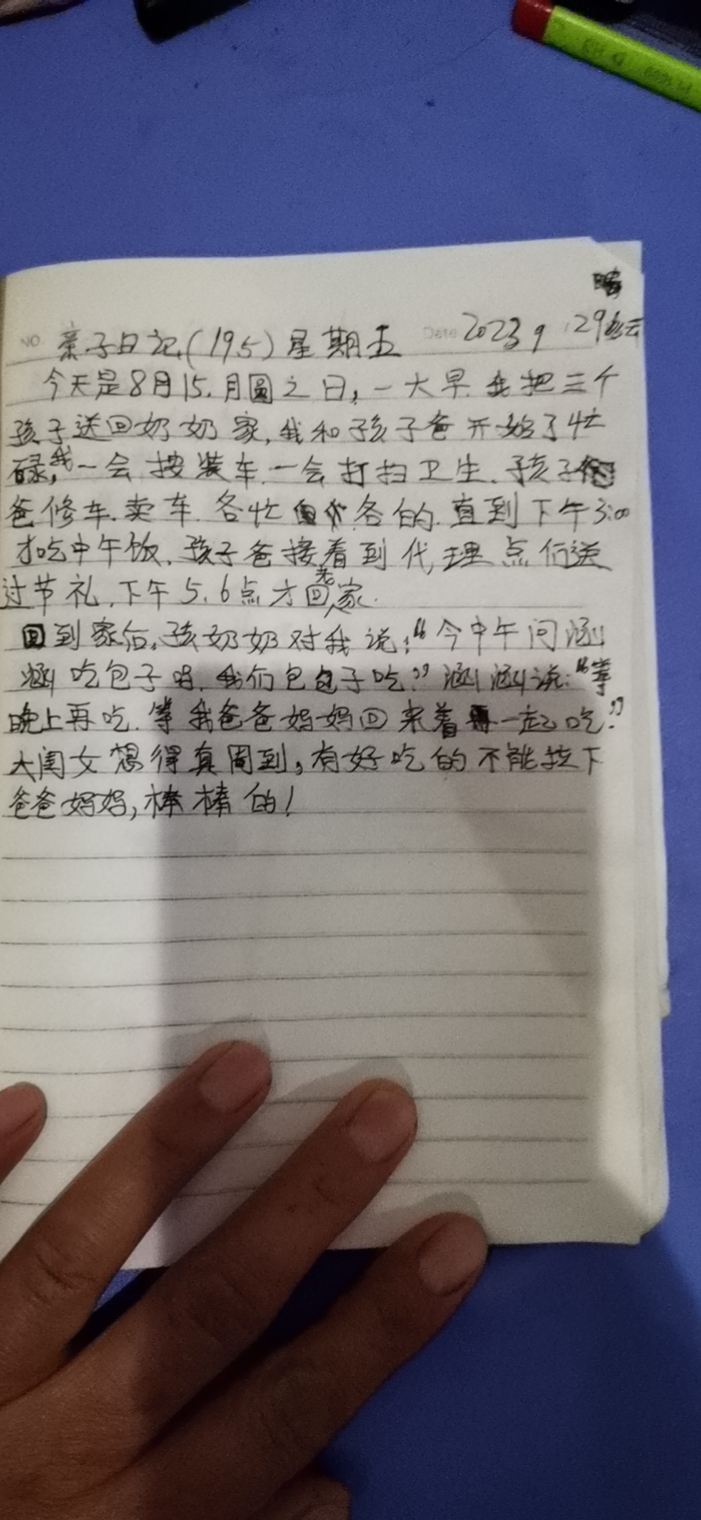 亲子日记(195)星期五 Date 2023 9 29
今天是8月15.月圆之日,一大早.我把三个
孩子送回奶奶家,我和孩子爸开始了忙
碌,我一会按装车.一会打扫卫生.孩子
爸修车.卖车.各忙各的.直到下午3:00
才吃中午饭.孩子爸接着到代理点们送
过节礼.下午5.6点才回老家.
回到家后,孩奶奶对我说:“今中午问涵
涵吃包子吗.我们包包子吃?”涵涵说:“等
晚上再吃.等我爸爸妈妈回来着一起吃.”
大闺女想得真周到,有好吃的不能拉下
爸爸妈妈,棒棒的!